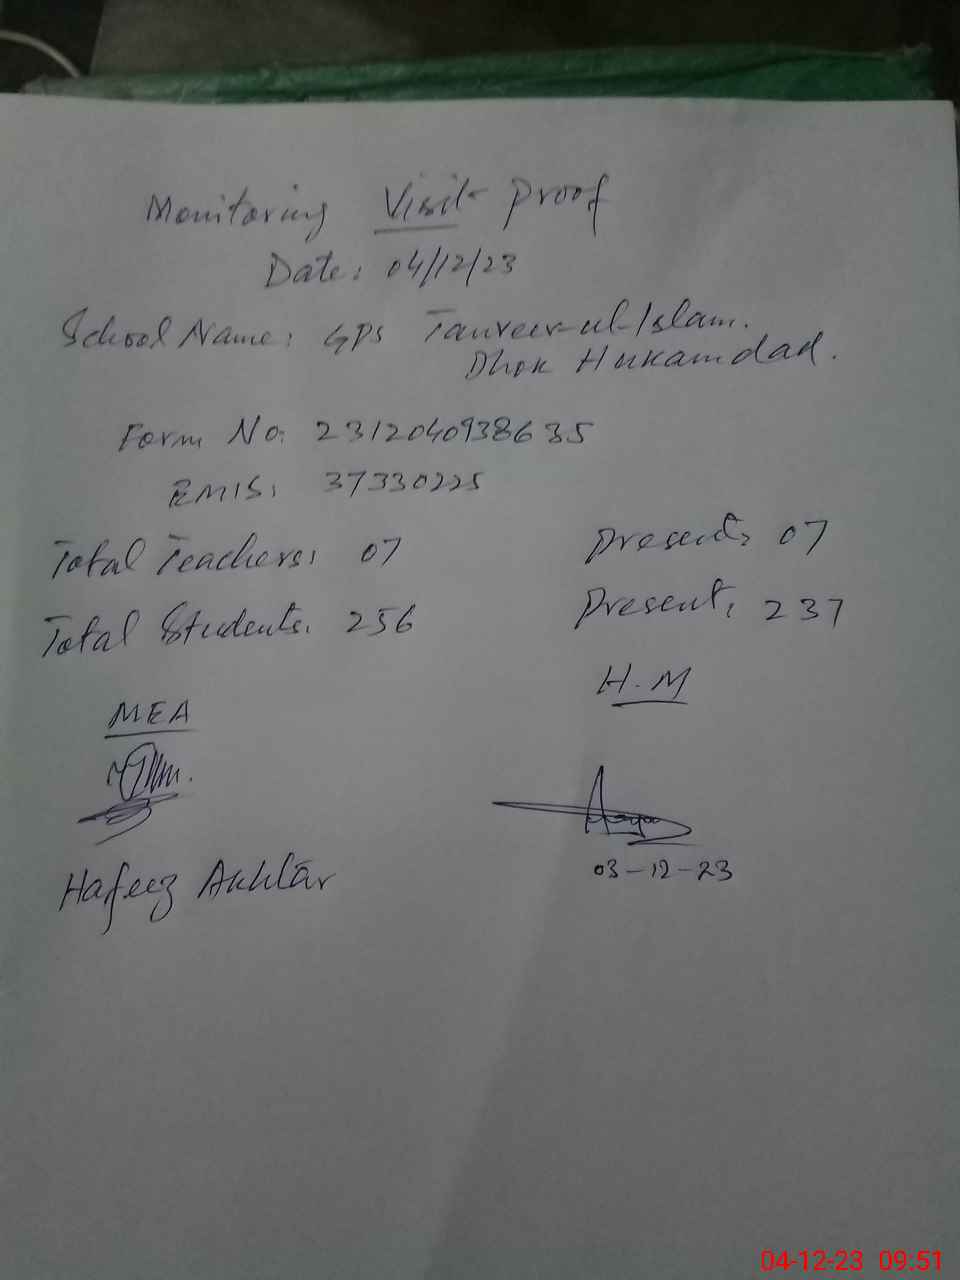 Monitoring Visit Proof
Date: 04/12/23
School Name: GPS Tanveer-ul-Islam.
Dhok Hukamdad.
Form No: 2312040938635
EMIS: 37330225
Total Teachers: 07 Present: 07
Total Students: 256 Present: 237
MEA H.M
03-12-23
Hafeez Akhtar
04-12-23 09:51